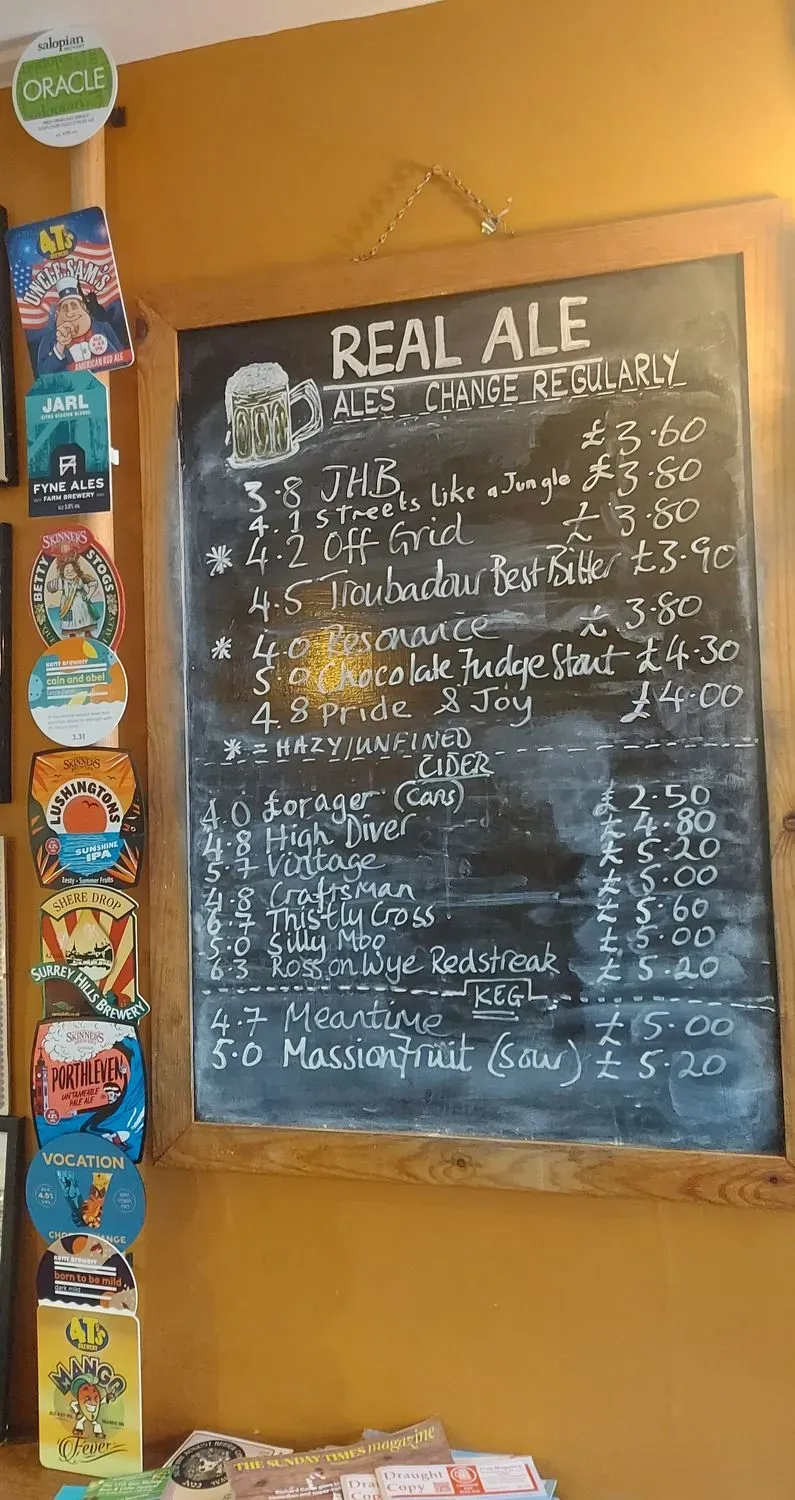 salopian
BREWERY
ORACLE
4T's
BREWERY
UNCLE SAM'S
AMERICAN RED ALE
JARL
FYNE ALES
FARM BREWERY
SKINNER'S
BETTY STOGS
Kent Brewery
cain and abel
3.31
SKINNER'S
LUSHINGTONS
SUNSHINE
IPA
Zesty - Summer Fruits
SHERE DROP
SURREY HILLS BREWERY
SKINNER'S
PORTHLEVEN
UNTAMEABLE
PALE ALE
VOCATION
4.5%
Kent Brewery
born to be mild
dark mild
4T's
BREWERY
MANGO
Fever
REAL ALE
ALES CHANGE REGULARLY
3.8 JHB £3.60
4.1 Streets like a Jungle £3.80
* 4.2 Off Grid £3.80
4.5 Troubadour Best Bitter £3.90
* 4.0 Resonance £3.80
5.0 Chocolate Fudge Stout £4.30
4.8 Pride & Joy £4.00
* = HAZY/UNFINED
CIDER
4.0 £orager (cans) £2.50
4.8 High Diver £4.80
5.7 Vintage £5.20
4.8 Craftsman £5.00
6.7 Thistly Cross £5.60
5.0 Silly Moo £5.00
6.3 Ross on Wye Redstreak £5.20
KEG
4.7 Meantime £5.00
5.0 Massionfruit (sour) £5.20
THE SUNDAY TIMES magazine
Draught
Copy